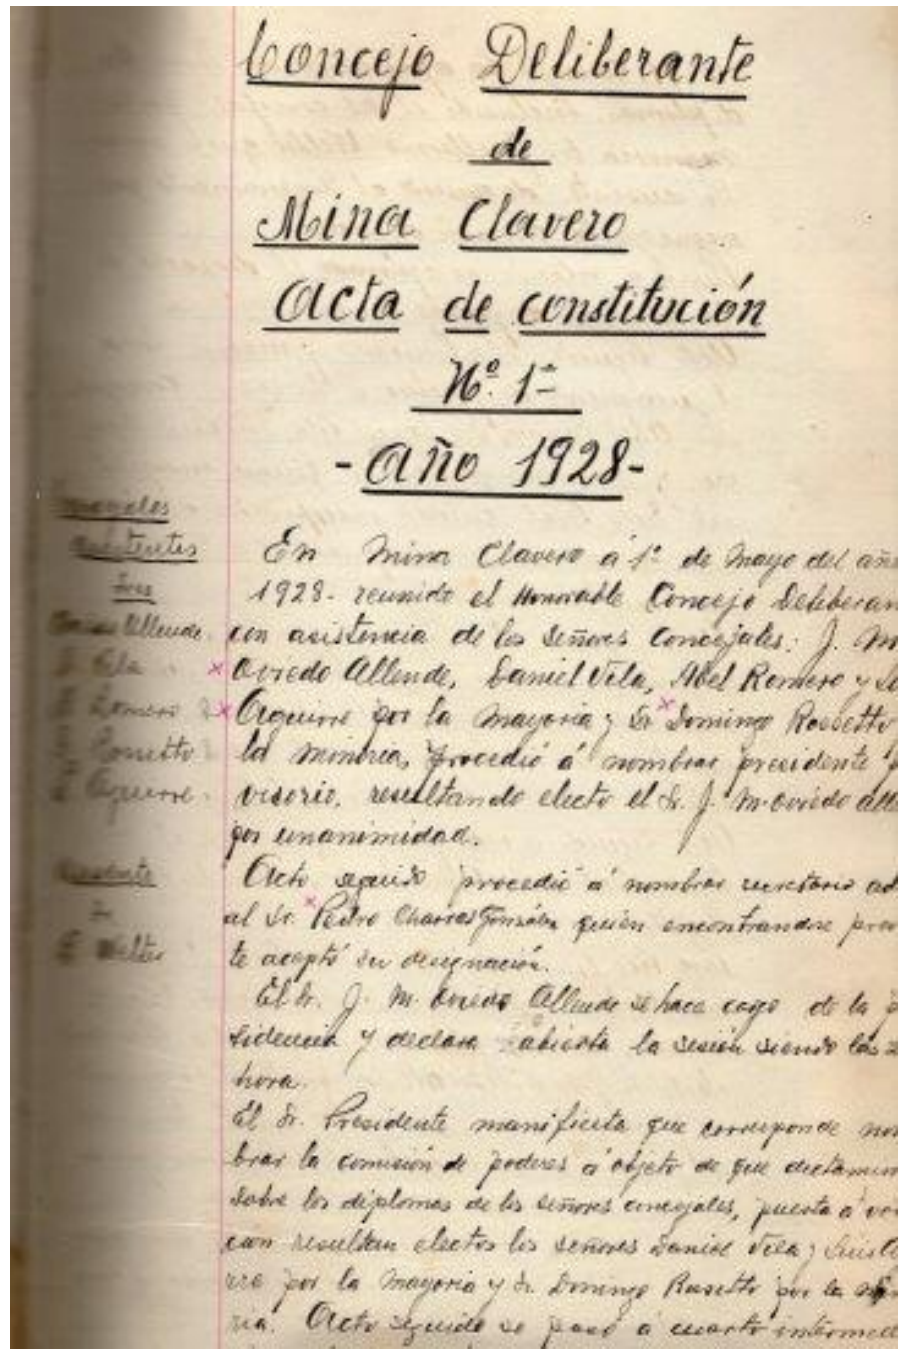 Concejo Deliberante
de
Mina Clavero
Acta de constitución
Nº. 1º
- Año 1928 -
Asistentes
Allende
Vela
Romero
Rossetto
Aguirre
En Mina Clavero á 1º de Mayo del año
1928 - reunido el Honorable Concejo Deliberan
con asistencia de los Señores Concejales: J. M.
Oviedo Allende, Daniel Vela, Abel Romero y
Aguirre por la Mayoria y Sr Domingo Rossetto
la Minoria, procedió á nombrar presidente p
visorio, resultando electo el Sr. J. M. Oviedo Alle
por unanimidad.
Acto seguido procedió á nombrar secretario ad
al Sr. Pedro Charras González quien encontrandose pres
te aceptó su designación.
El Sr. J. M. Oviedo Allende se hace cargo de la p
sidencia y declara abierta la sesión siendo las
hora.
El Sr. Presidente manifiesta que corresponde nom
brar la comisión de poderes á objeto de que dictamin
sobre los diplomas de los señores concejales, puesta á vo
cion resultan electos los señores Daniel Vela y
rre por la Mayoria y Sr. Domingo Rossetto por la
ria. Acto seguido se pasó á cuarto intermed